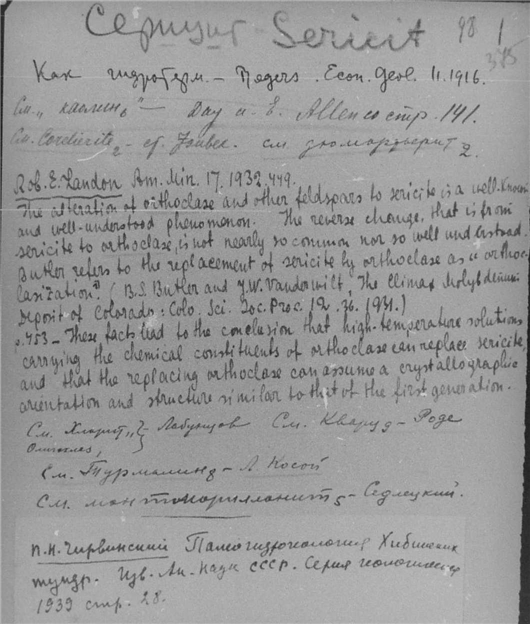 Серицит Sericit 98 1
375
Как гидротерм. – Rogers. Econ. Geol. 11. 1916.
См. „каолин" – Day и E. Allen со стр. 141.
См. Cordierite₂ – ст. см. дюмортьерит 2.
Rob. E. Landon Am. Min. 17. 1932. 449.
The alteration of orthoclase and other feldspars to sericite is a well-known
and well-understood phenomenon. The reverse change, that is from
sericite to orthoclase, is not nearly so common nor so well understood.
Butler refers to the replacement of sericite by orthoclase as "orthoc-
lasization". (B.S. Butler and J.W. Vanderwilt, The Climax Molybdenum
Deposit of Colorado: Colo. Sci. Soc. Proc. 12. 36. 1931.)
p. 453 – These facts led to the conclusion that high-temperature solutions
carrying the chemical constituents of orthoclase can replace sericite
and that the replacing orthoclase can assume a crystallographic
orientation and structure similar to that of the first generation.
См. Хлорит„ } – Лабунцов См. Кварц₈ – Роде
Олигоклаз,
См. Турмалин₈ – А. Косой
См. монтмориллонит₅ – Седлецкий.
П.Н. Чирвинский Палеогидрогеология Хибинских
тундр. Изв. Ак. Наук СССР. Серия геологическая
1939 стр. 28.